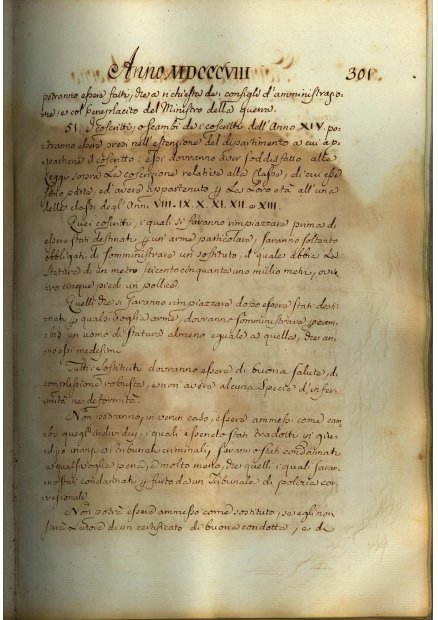 Anno MDCCCVIII 301
potranno essere fatti, che a richiesta de i consigli d'amministrazio-
ne, e col beneplacito del Ministro della guerra.
51. I coscritti, o scambi de i coscritti dell'Anno XIV. po-
tranno essere presi nell'estensione del dipartimento a cui ap-
partiene il coscritto: essi dovranno aver soddisfatto alle
Leggi sopra La coscrizione relative alla classe, di cui essi
sono parte, ed avere appartenuto p La Loro età all'una
delle classi degl'Anni VIII. IX. X. XI. XII. e XIII.
Quei coscritti, i quali si faranno rimpiazzare prima di
essere stati destinati p un'arme particolare, saranno soltanto
obbligati di somministrare un sostituto, il quale abbia La
statura di un metro seicento cinquantuno millimetri, ov-
vero cinque piedi un pollice.
Quelli che si faranno rimpiazzare dopo essere stati desti-
nati p qualsivoglia arme, dovranno somministrare p cam-
bio un uomo di statura almeno eguale a quella, che av-
anno essi medesimi.
Tutti i sostituti dovranno essere di buona salute, di
complessione robusta, e non avere alcuna specie d'infer-
mità ne deformità.
Non potranno, in verun caso, essere ammessi come cam-
bi quegl'individui, i quali essendo stati tradotti in giu-
dizio innanzi a i tribunali criminali, saranno stati condannati
a qualsivoglia pena, e molto meno, che quelli i quali saran-
no stati condannati p furto da un Tribunale di polizia cor-
rezionale.
Non potrà essere ammesso come sostituto, se egli non
sarà Latore di un certificato di buona condotta, e di